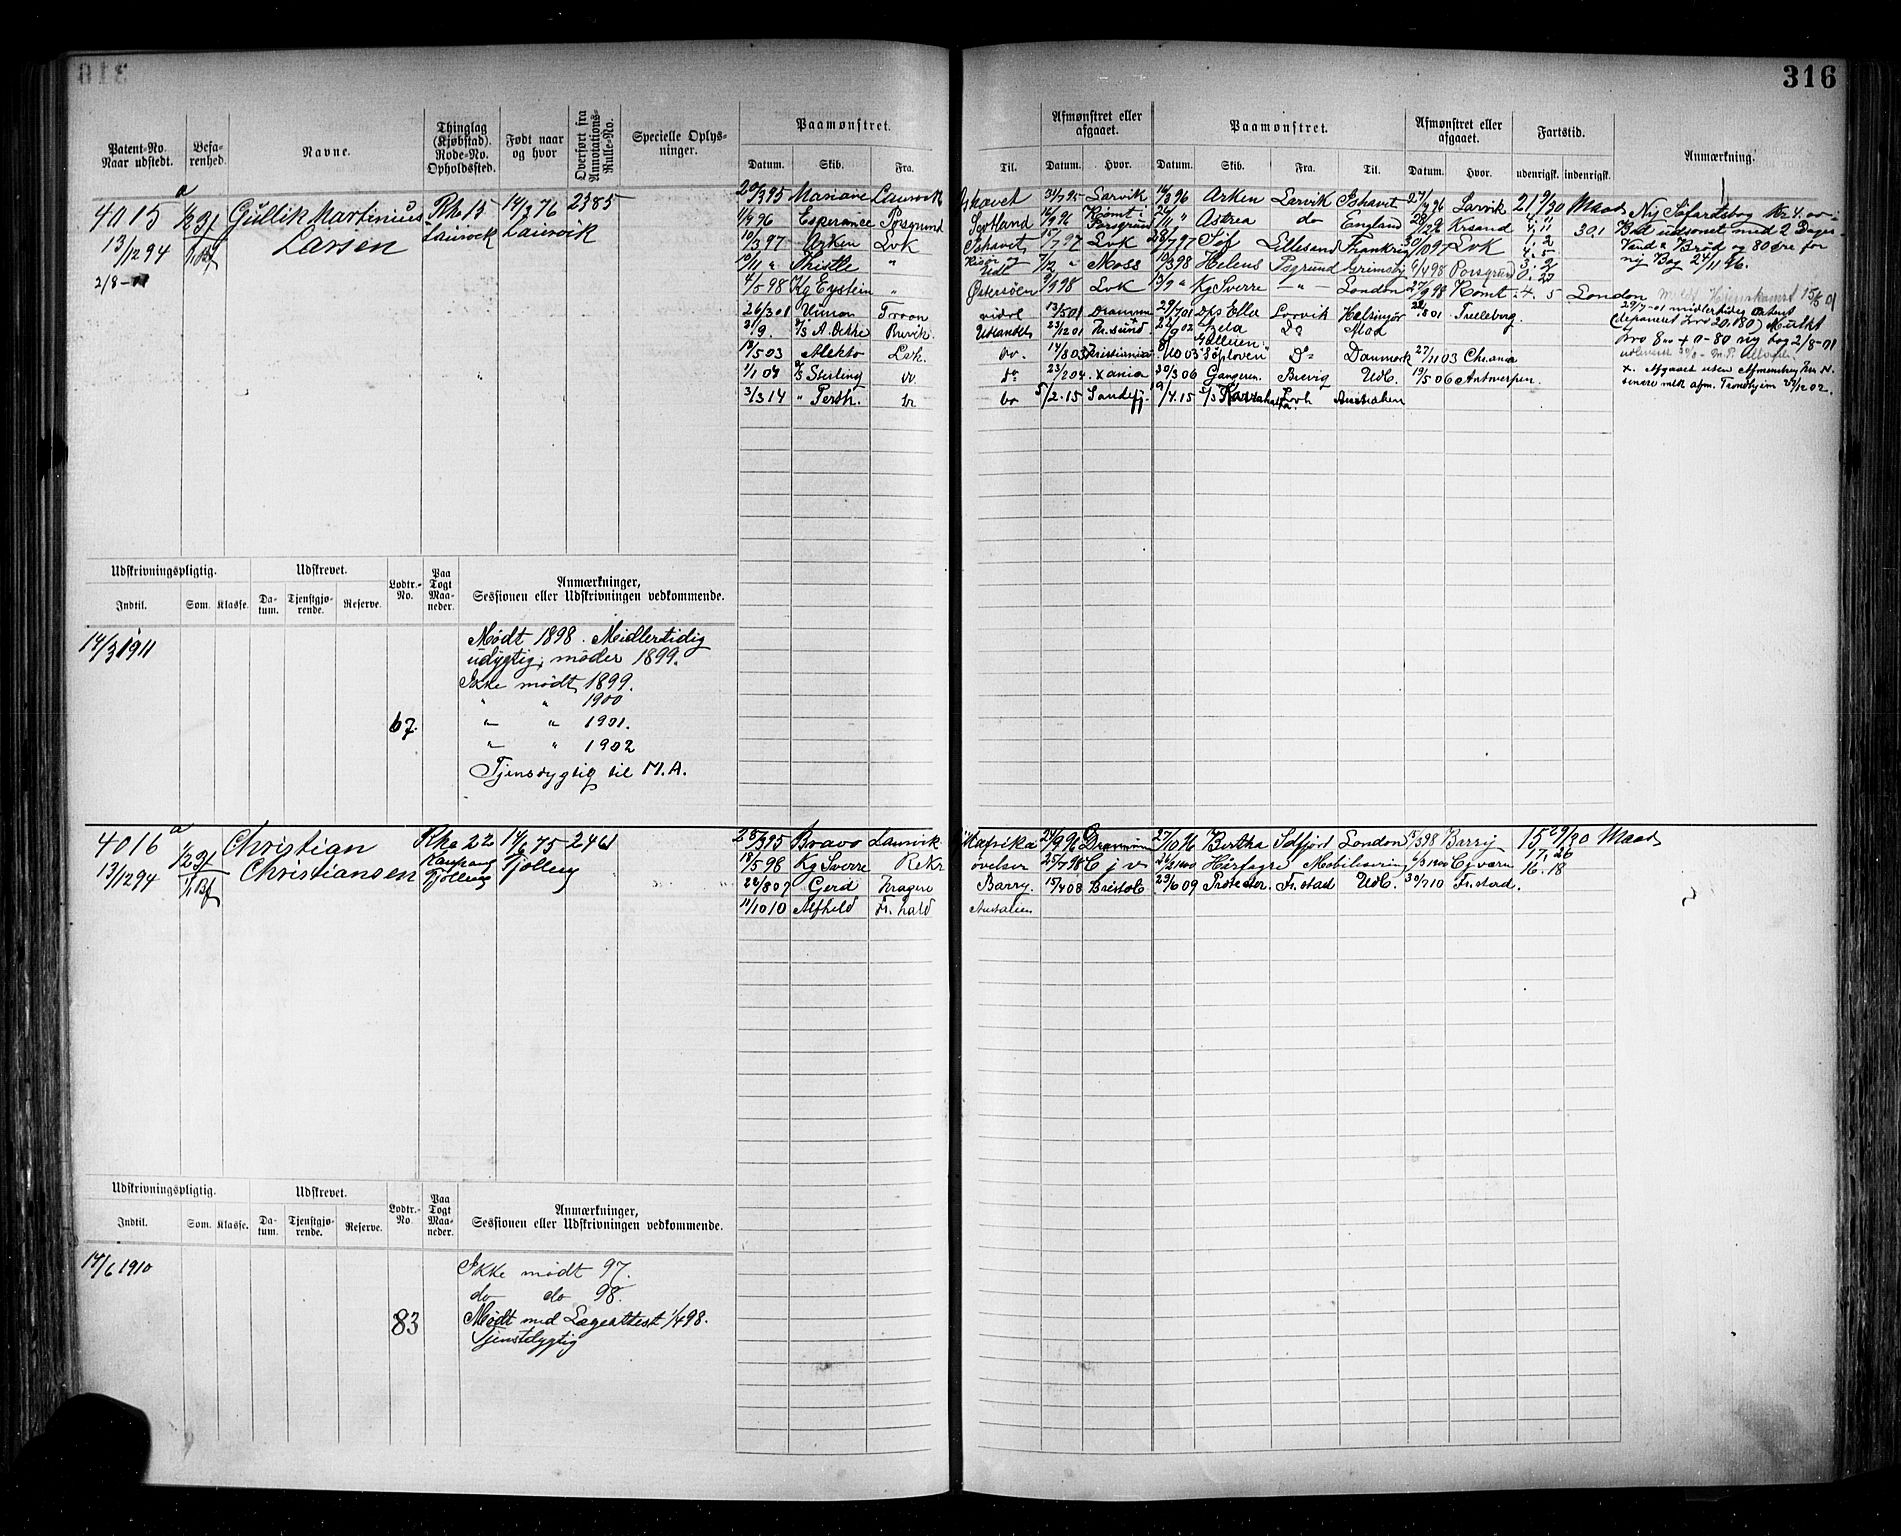 316
Patent-No. Naar udstedt.
Befarenhed.
Navne.
Thinglag (Kjøbstad). Rode-No. Opholdssted.
Født naar og hvor
Overført fra Annotations-Rulle-No.
Specielle Oplysninger.
Paamønstret.
Datum. Skib. Fra. Til.
Afmønstret eller afgaaet.
Datum. Hvor.
Paamønstret.
Datum. Skib. Fra. Til.
Afmønstret eller afgaaet.
Datum. Hvor.
Fartstid.
udenrigsk. indenrigsk.
Anmærkning.
4015 a
13/12 94
2/8-
Gullik Martinius
Larsen
Rk 15
Laurvik
14/3 76
Laurvik
2385
20/3 95 Mariane Laurvik Ishavet 31/7 95 Larvik 16/3 96 Arken Larvik Ishavit 27/7 96 Larvik 21 9/30 Maad
1/9 96 Esperance Porsgrund Scotland Rømt i Porsgrund Astrea do England Krsand 4.11 301
10/3 97 Arken Lvk Ishavit 15/7 97 Lvk 28/7 97 Sif Lillesand Frankrig 30/10 97 Lvk 1.2
10/11 " Thistle " Risør og Udl 7/12 " Moss 10/3 98 Helens Psgrund Grimsby 6/4 98 Porsgrund 3.2
4/5 98 Kg Eystein " Østersøen 9/9 98 Lvk 13/9 " Kg Sverre " London 27/9 98 Rømt 4.5 London
26/3 01 Union Troon vidre 13/5 01 Drammen 29/7 01 Ella Larvik Helsingør 01 Trelleborg.
21/9. S/S A. Dekke Brevik. Udlandet 23/12 01 Kr.sund 02 do
18/5 03 Alekto Lvk. do. 14/8 03 Kristiania 8/10 03 "Søploven" do Danmark 27/11 03 Chr.ania
1/1 04 S/S Sterling do do 23/2 04 Xania 30/3 06 Gangeren Brevig Udl. 19/5 06 Antwerpen.
3/3 14 " Perth. do do 5/2.15 Sandefj. 9/4.15 S/S Lvk Australien
Ny Søfartsbog Kr 4. av -
Bød udsonet med 2 Dages
Vand & Brød og 80 øre for
ny Bog 24/11 96.
29/7-01 midlertidig
(deponeret Kro 20,180) Mulkt
Kro 8,00 + 0-80 ny bog 2/8-01
x. Afgaaet uden Afmønstring Kr. N.
senere medt. afm. Trondhjem 02.
Udskrivningspligtig.
Indtil. Som. Klasse.
Udskrevet.
Datum. Tjenstgjørende. Reserve.
Lodtr.-No.
Paa Togt Maaneder.
Anmærkninger,
Sessionen eller Udskrivningen vedkommende.
14/3 1911
67.
Mødt 1898. Midlertidig
udygtig; møder 1899.
Ikke mødt 1899.
" " 1900
" " 1901.
" " 1902
Tjensdygtig til M.A.
4016 a
13/12 94
Christian
Christiansen
Rke 22
Kaupang
Tjølling
14/6 75
Tjølling
2461
25/3 95 Bravo Laurvik Afrika 24/9 96 Drammen 27/10 96 Bertha Idfjord London 98 Barry 15 29/30 Maad
18/5 98 Kg Sverre Rekr øvelser 25/7 98 Cjv Hårfagre Mobilisering Cjværn 17.26
22/8 07 Gerd Kragerø Barry. 15/4 08 Bristol 29/6 09 Protector. Fr.stad Udl. 30/7 10 Fr.stad. 16.18
11/10 10 Alfhild Fr.hald Australien
Udskrivningspligtig.
Indtil. Som. Klasse.
Udskrevet.
Datum. Tjenstgjørende. Reserve.
Lodtr.-No.
Paa Togt Maaneder.
Anmærkninger,
Sessionen eller Udskrivningen vedkommende.
14/6 1910
83
Ikke mødt 97.
do do 98.
Mødt med Lægeattest 1/4 98.
Tjenstdygtig